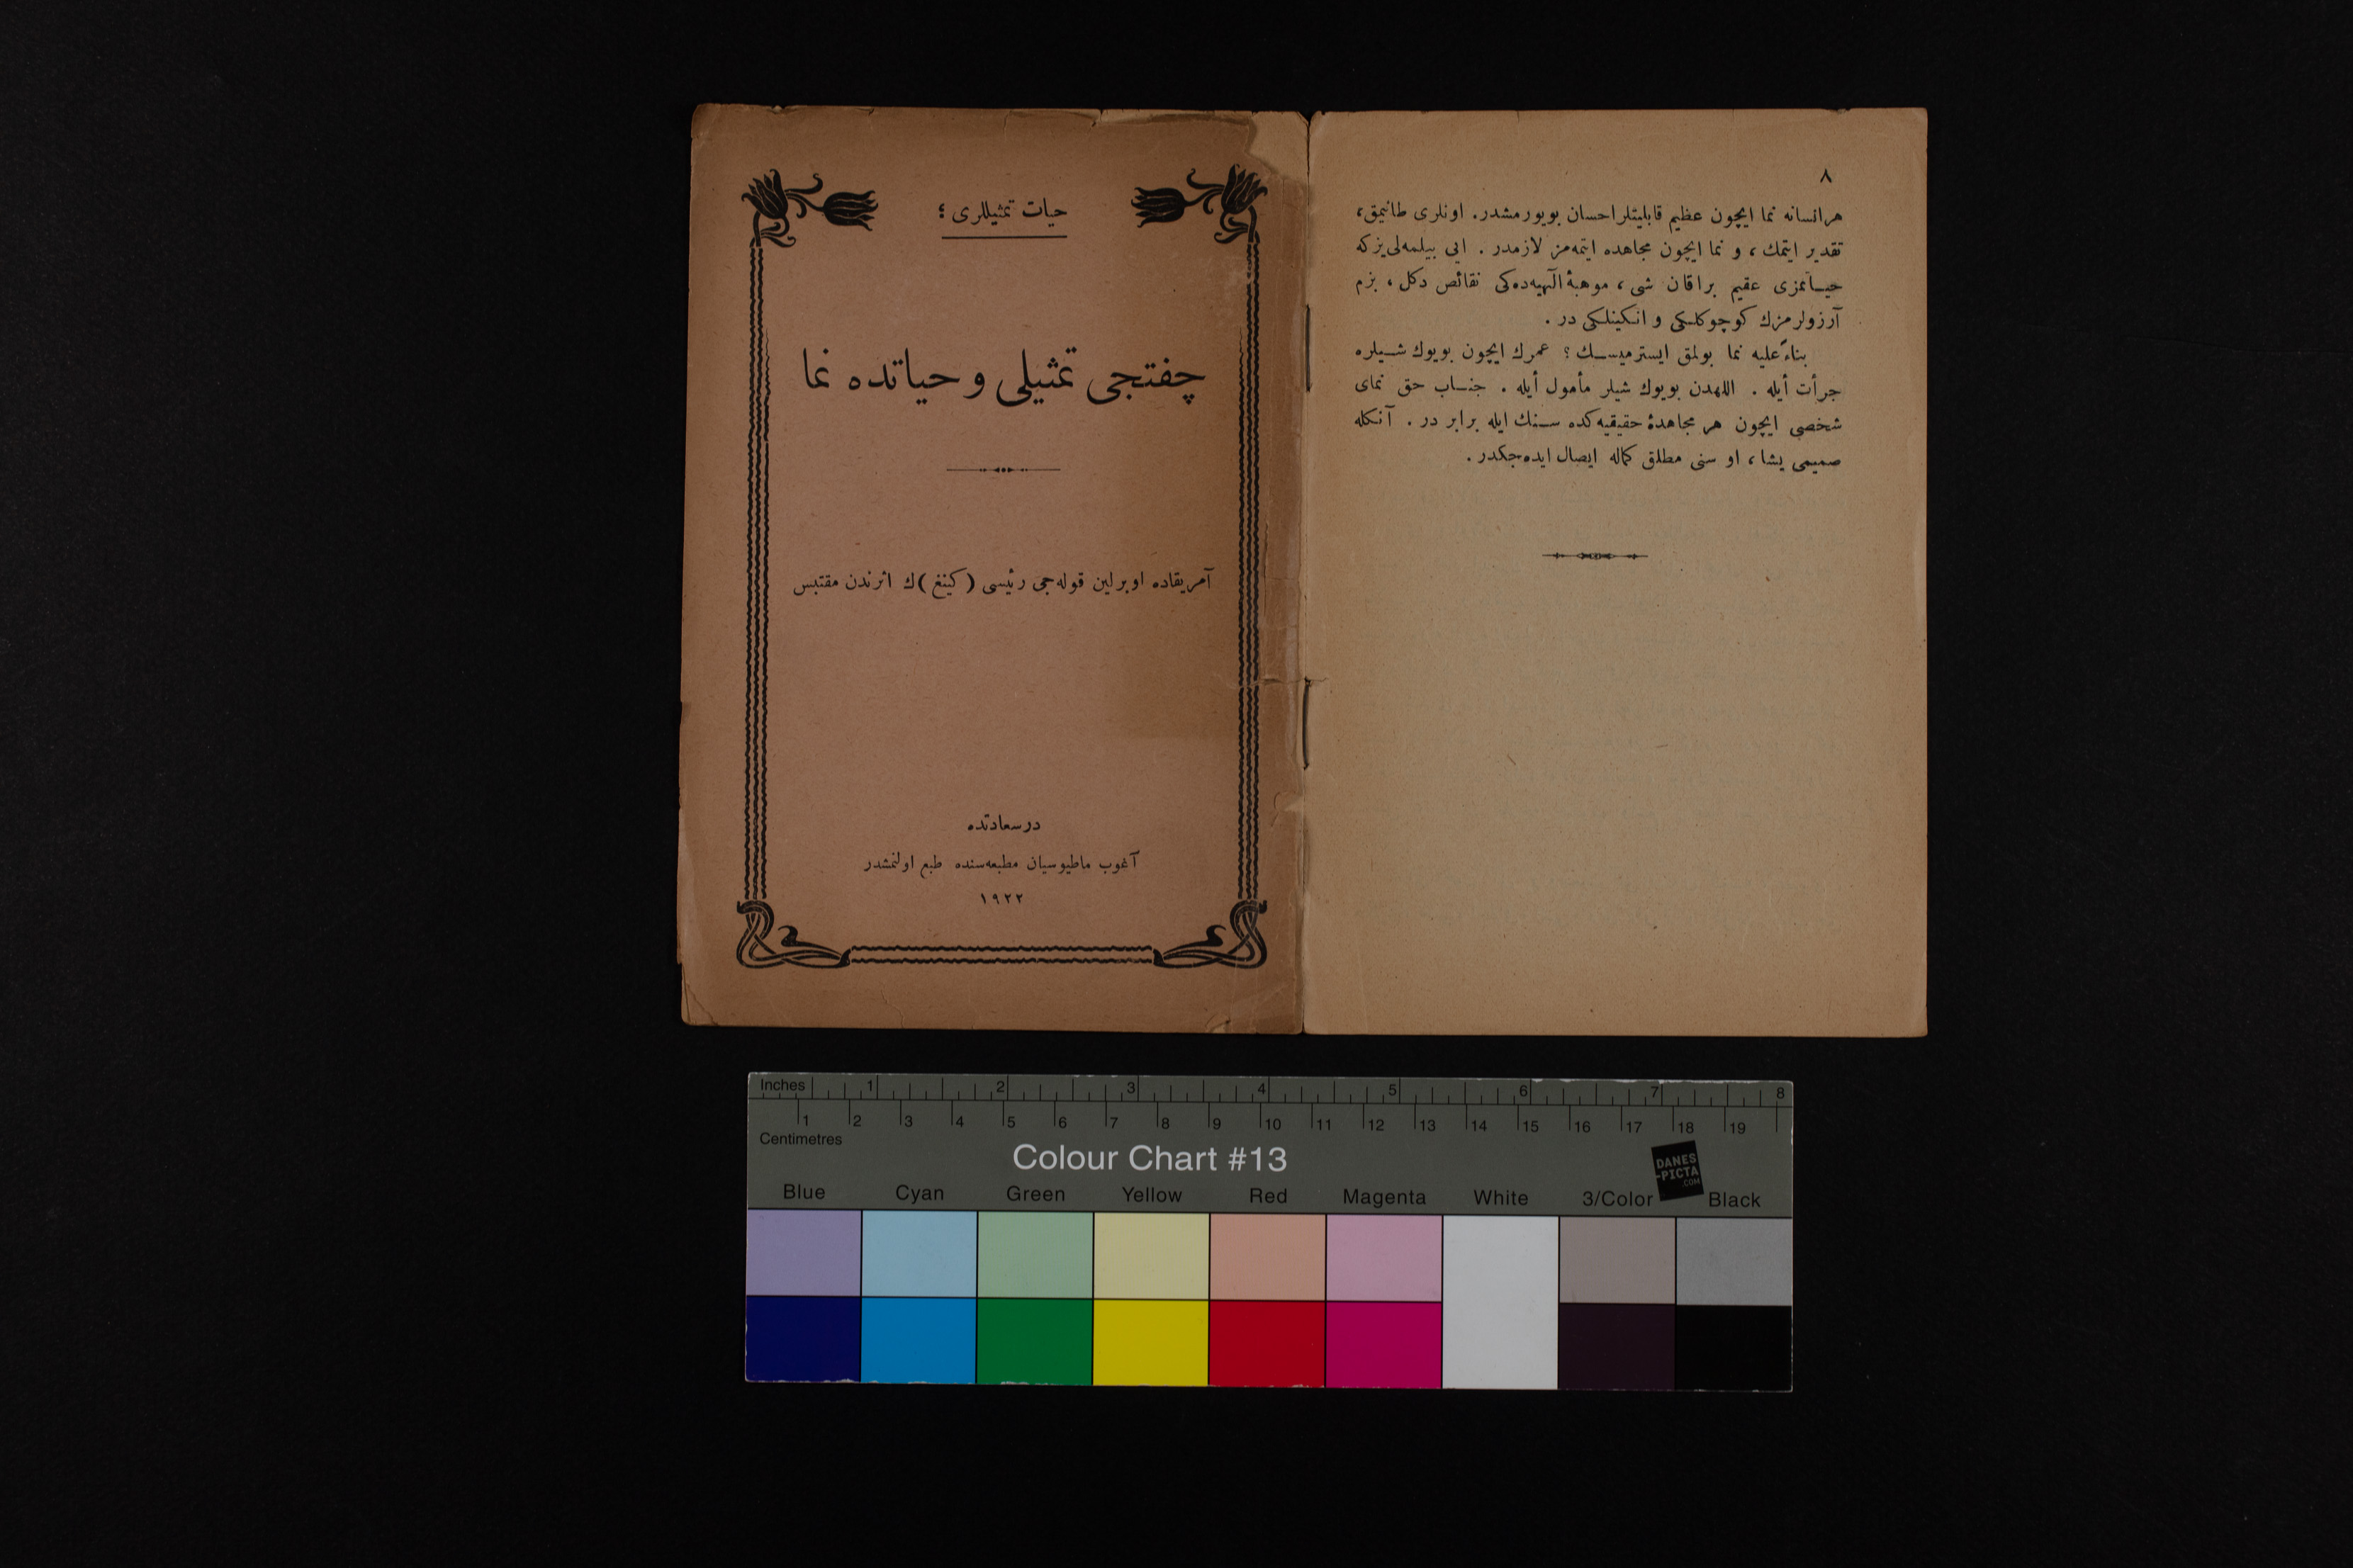 حیات تمثیللری ؛
چفتجی تمثیلی و حیاتده نما
آمریقاده اوبرلین قوله‌جی رئیسی ( کینغ )ك اثرندن مقتبس
درسعادتده
آغوب ماطیوسیان مطبعه‌سنده طبع اولنمشدر
١٩٢٢
٨
هرانسانه نما ایچون عظیم قابلیتلر احسان بویورمشدر. اونلری طانیمق،
تقدیر ایتمك ، و نما ایچون مجاهده ایتمه‌مز لازمدر . ایی بیلمه‌لی‌یز که
حیـاتمزی عقیم براقان شی ، موهبهٔ الٓهیه‌ده‌کی نقائص دکل ، بزم
آرزولرمزك کوچوکلـکی و انـکینلـکی در .
بناءً علیه نما بولمق ایسترمیسـك ؟ عمرك ایچون بویوك شـیلره
جرأت أیله . اللهدن بویوك شیلر مأمول أیله . جنـاب حق نمای
شخصی ایچون هر مجاهدهٔ حقیقیه‌کده سـنك ایله برابر در . آنـکله
صمیمی یشا ، او سنی مطلق کماله ایصال ایده‌جکدر .
Inches 1 2 3 4 5 6 7 8
1 2 3 4 5 6 7 8 9 10 11 12 13 14 15 16 17 18 19
Centimetres
Colour Chart #13
DANES
-PICTA
.COM
Blue Cyan Green Yellow Red Magenta White 3/Color Black